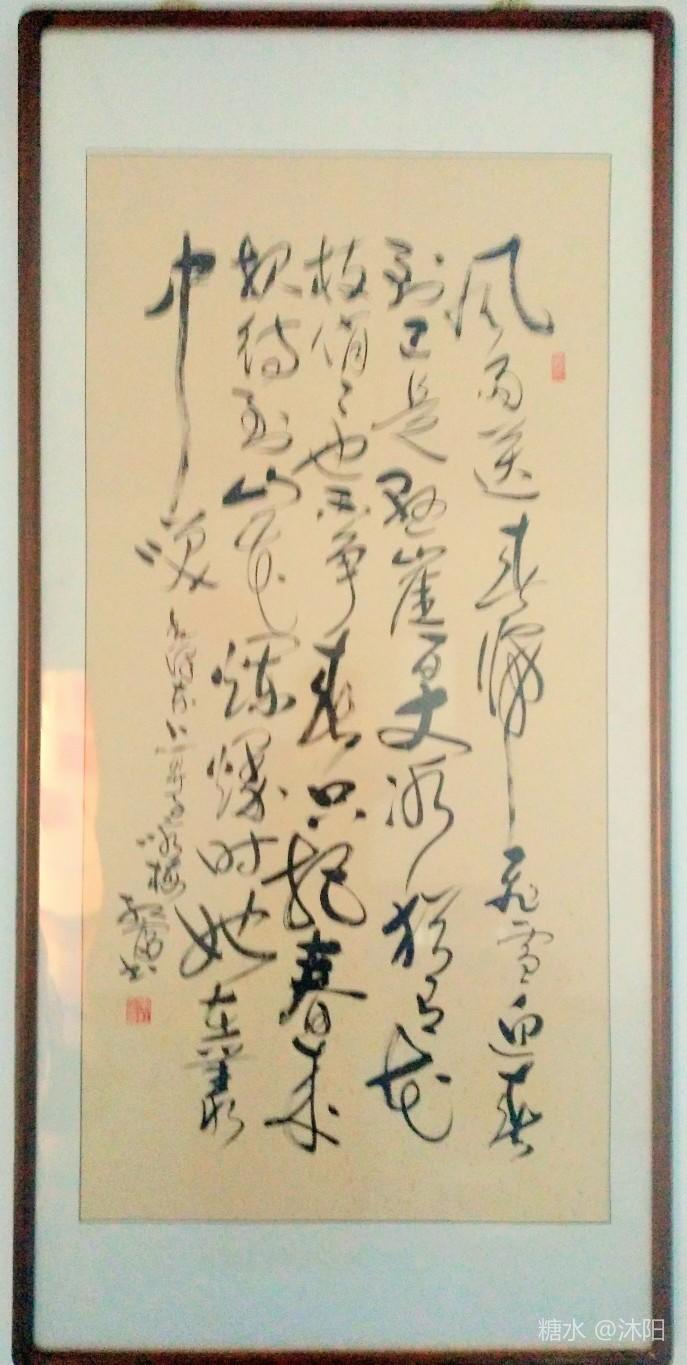 风雨送春归飞雪迎春
到已是悬崖百丈冰犹有花
枝俏〻也不争春只把春来
报待到山花爛熳时她在叢
中笑
毛泽东卜算子咏梅
书
糖水 @沐阳